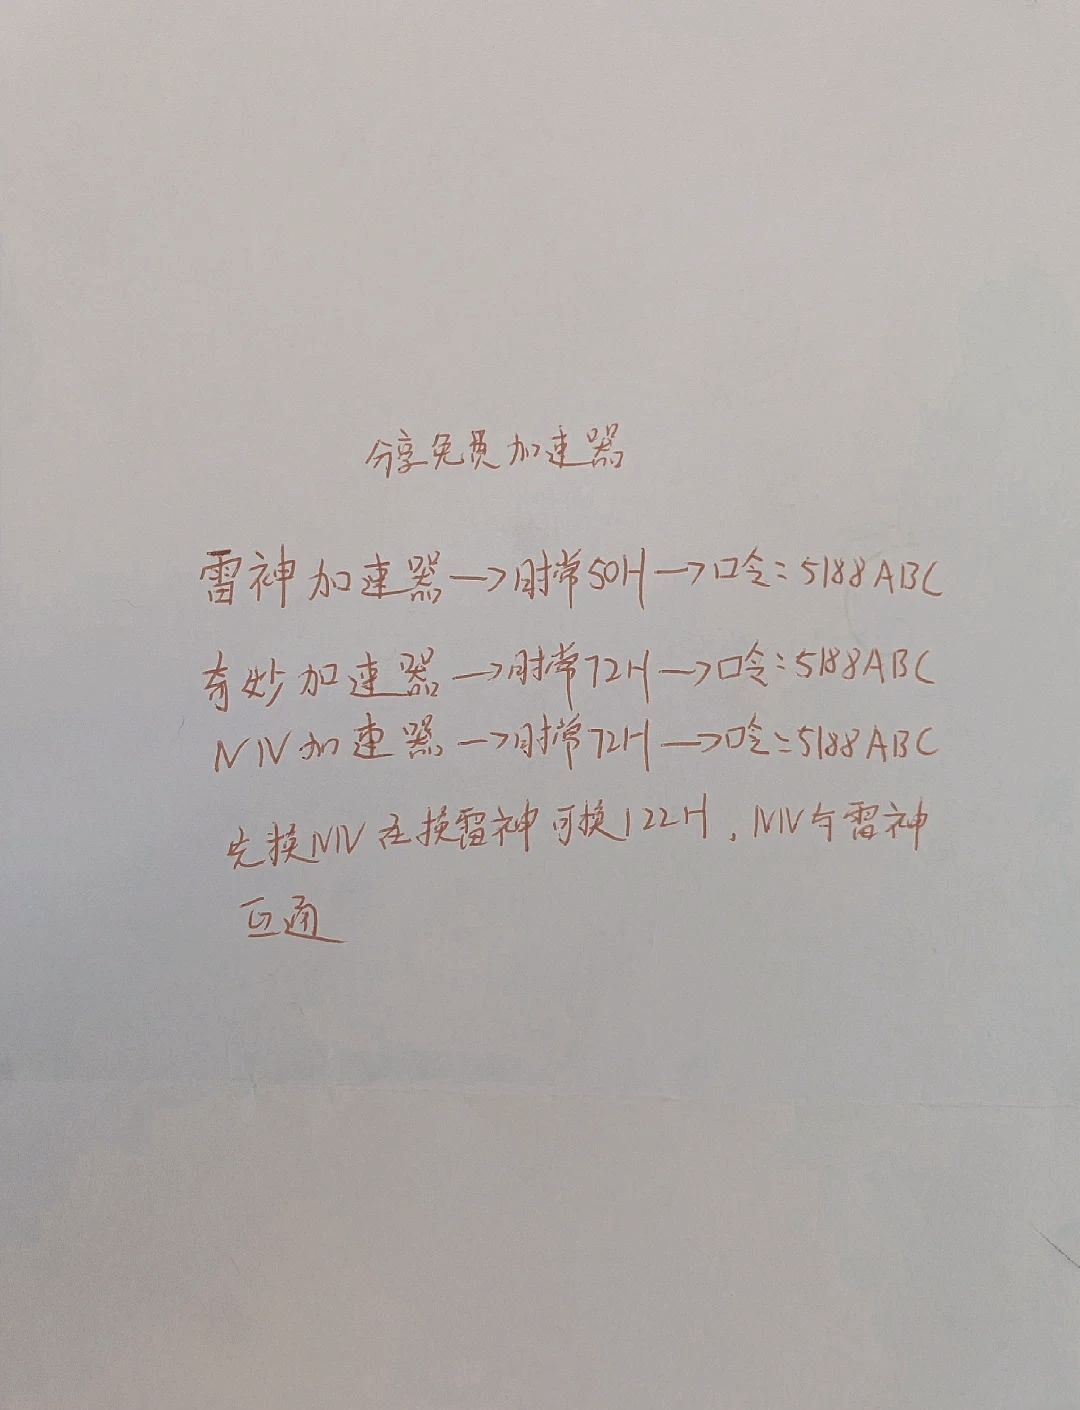 分享免费加速器
雷神加速器→时常50H→口令:5188ABC
奇妙加速器→时常72H→口令:5188ABC
NN加速器→时常72H→口令:5188ABC
先换NN在换雷神可换122H,NN与雷神
互通